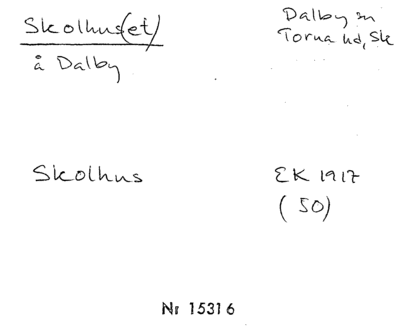 Skolhus(et)
å Dalby
Dalby sn
Torna hd, Sk
Skolhus
EK 1917
(50)
Nr 15316